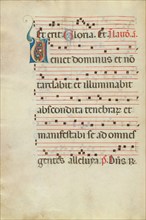 Et erit Gloria. Et
Veniet dominus et no
tardabit et illuminabit
abscondita tenebrar et
manifestabi se ad omnes
gentes alleluya p